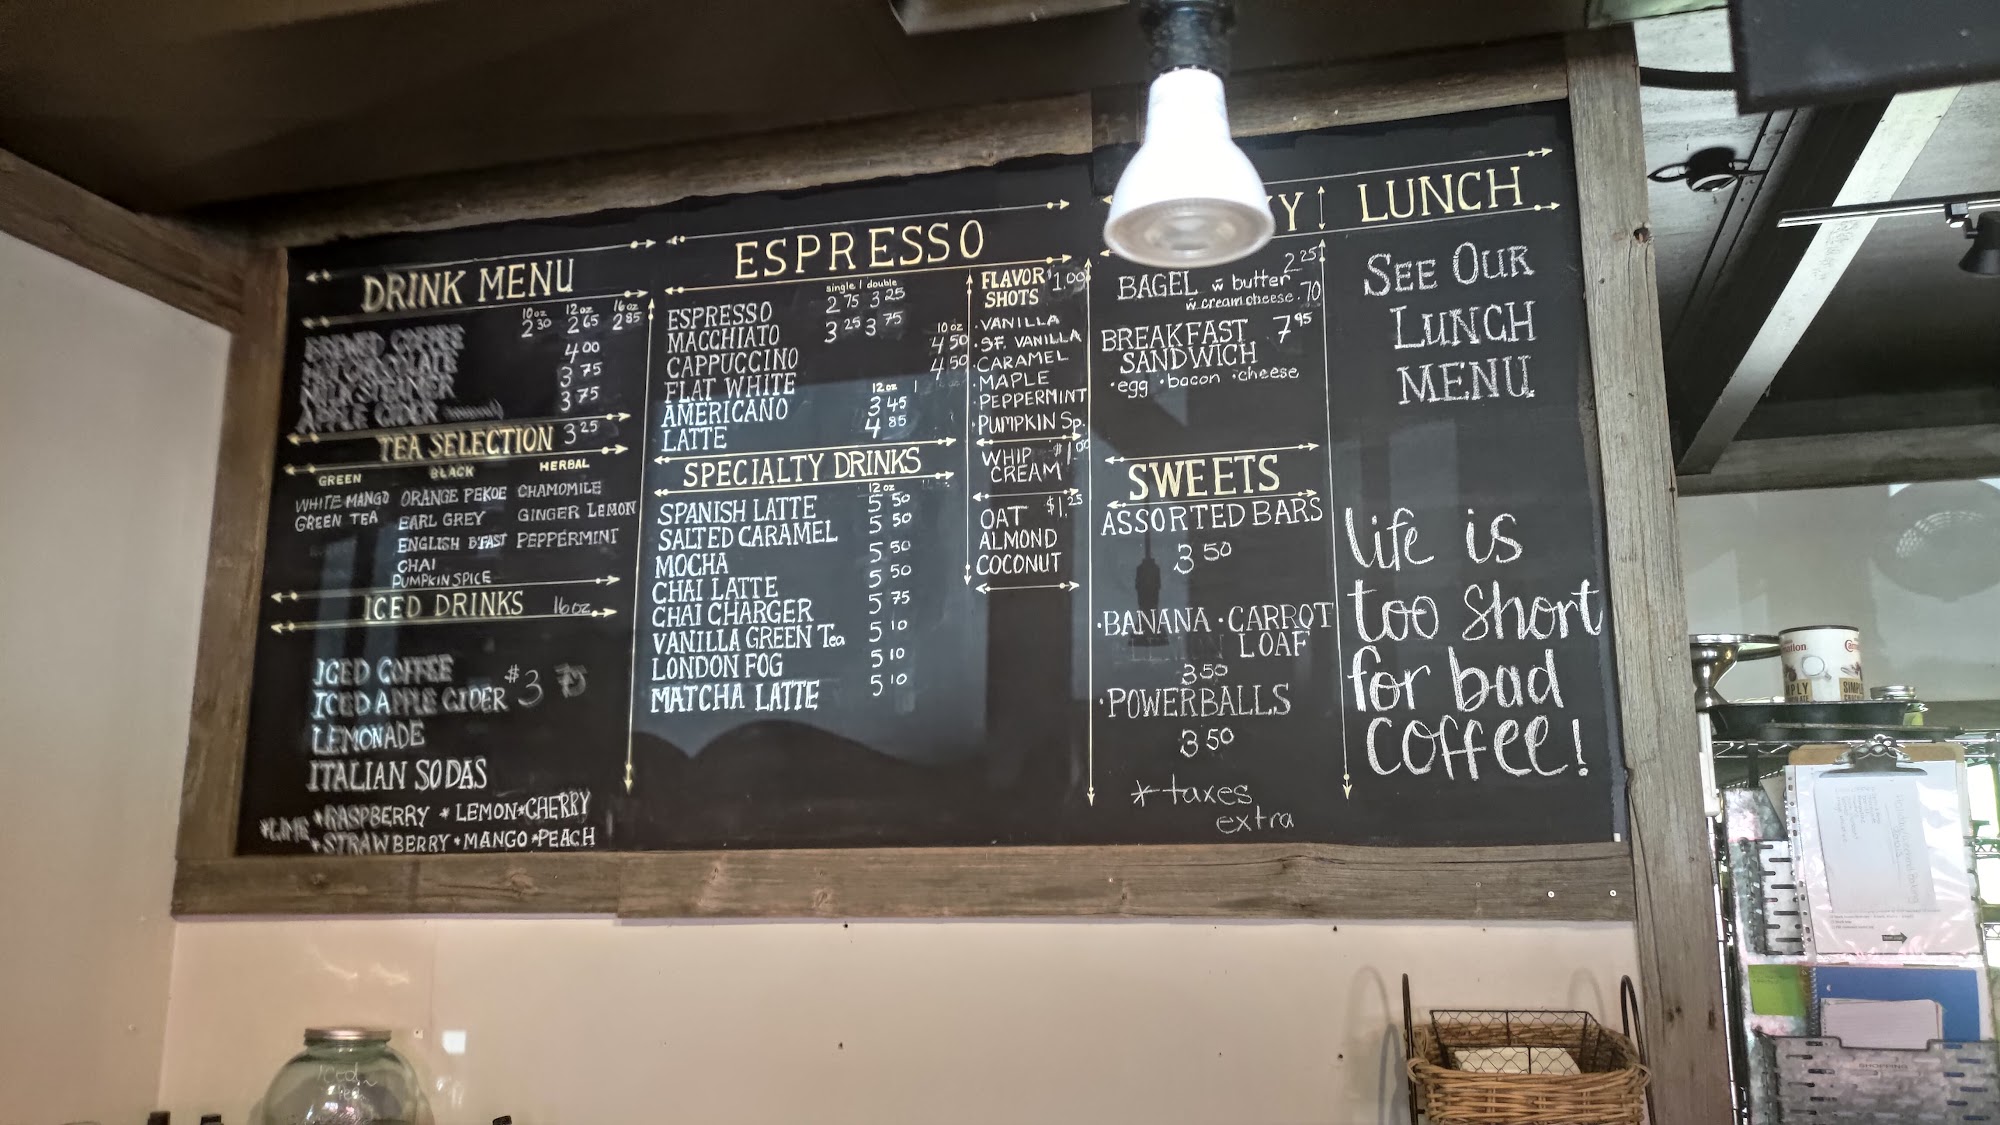 DRINK MENU
10oz 12oz 16oz
BREWED COFFEE 2 30 2 65 2 85
HOT CHOCOLATE 4 00
MILK STEAMER 3 75
APPLE CIDER 3 75
TEA SELECTION 3 25
GREEN BLACK HERBAL
WHITE MANGO ORANGE PEKOE CHAMOMILE
GREEN TEA EARL GREY GINGER LEMON
ENGLISH B'FAST PEPPERMINT
CHAI
PUMPKIN SPICE
ICED DRINKS 16oz
ICED COFFEE
ICED APPLE CIDER $3 75
LEMONADE
ITALIAN SODAS
*RASPBERRY * LEMON*CHERRY
*LIME *STRAWBERRY *MANGO *PEACH
ESPRESSO
single | double
ESPRESSO 2 75 3 25
MACCHIATO 3 25 3 75
10oz
CAPPUCCINO 4 50
FLAT WHITE 4 50
12oz
AMERICANO 3 45
LATTE 4 85
SPECIALTY DRINKS
12oz
SPANISH LATTE 5 50
SALTED CARAMEL 5 50
MOCHA 5 50
CHAI LATTE 5 50
CHAI CHARGER 5 75
VANILLA GREEN Tea 5 10
LONDON FOG 5 10
MATCHA LATTE 5 10
FLAVOR $1.00
SHOTS
·VANILLA
·SF. VANILLA
·CARAMEL
·MAPLE
·PEPPERMINT
·PUMPKIN Sp.
WHIP $1.00
CREAM
OAT $1.25
ALMOND
COCONUT
KY
BAGEL w butter 2 25
w creamcheese .70
BREAKFAST 7 95
SANDWICH
·egg ·bacon ·cheese
SWEETS
ASSORTED BARS
3 50
·BANANA ·CARROT
LOAF
3 50
·POWERBALLS
3 50
*taxes
extra
LUNCH
SEE OUR
LUNCH
MENU
life is
too short
for bad
coffee!